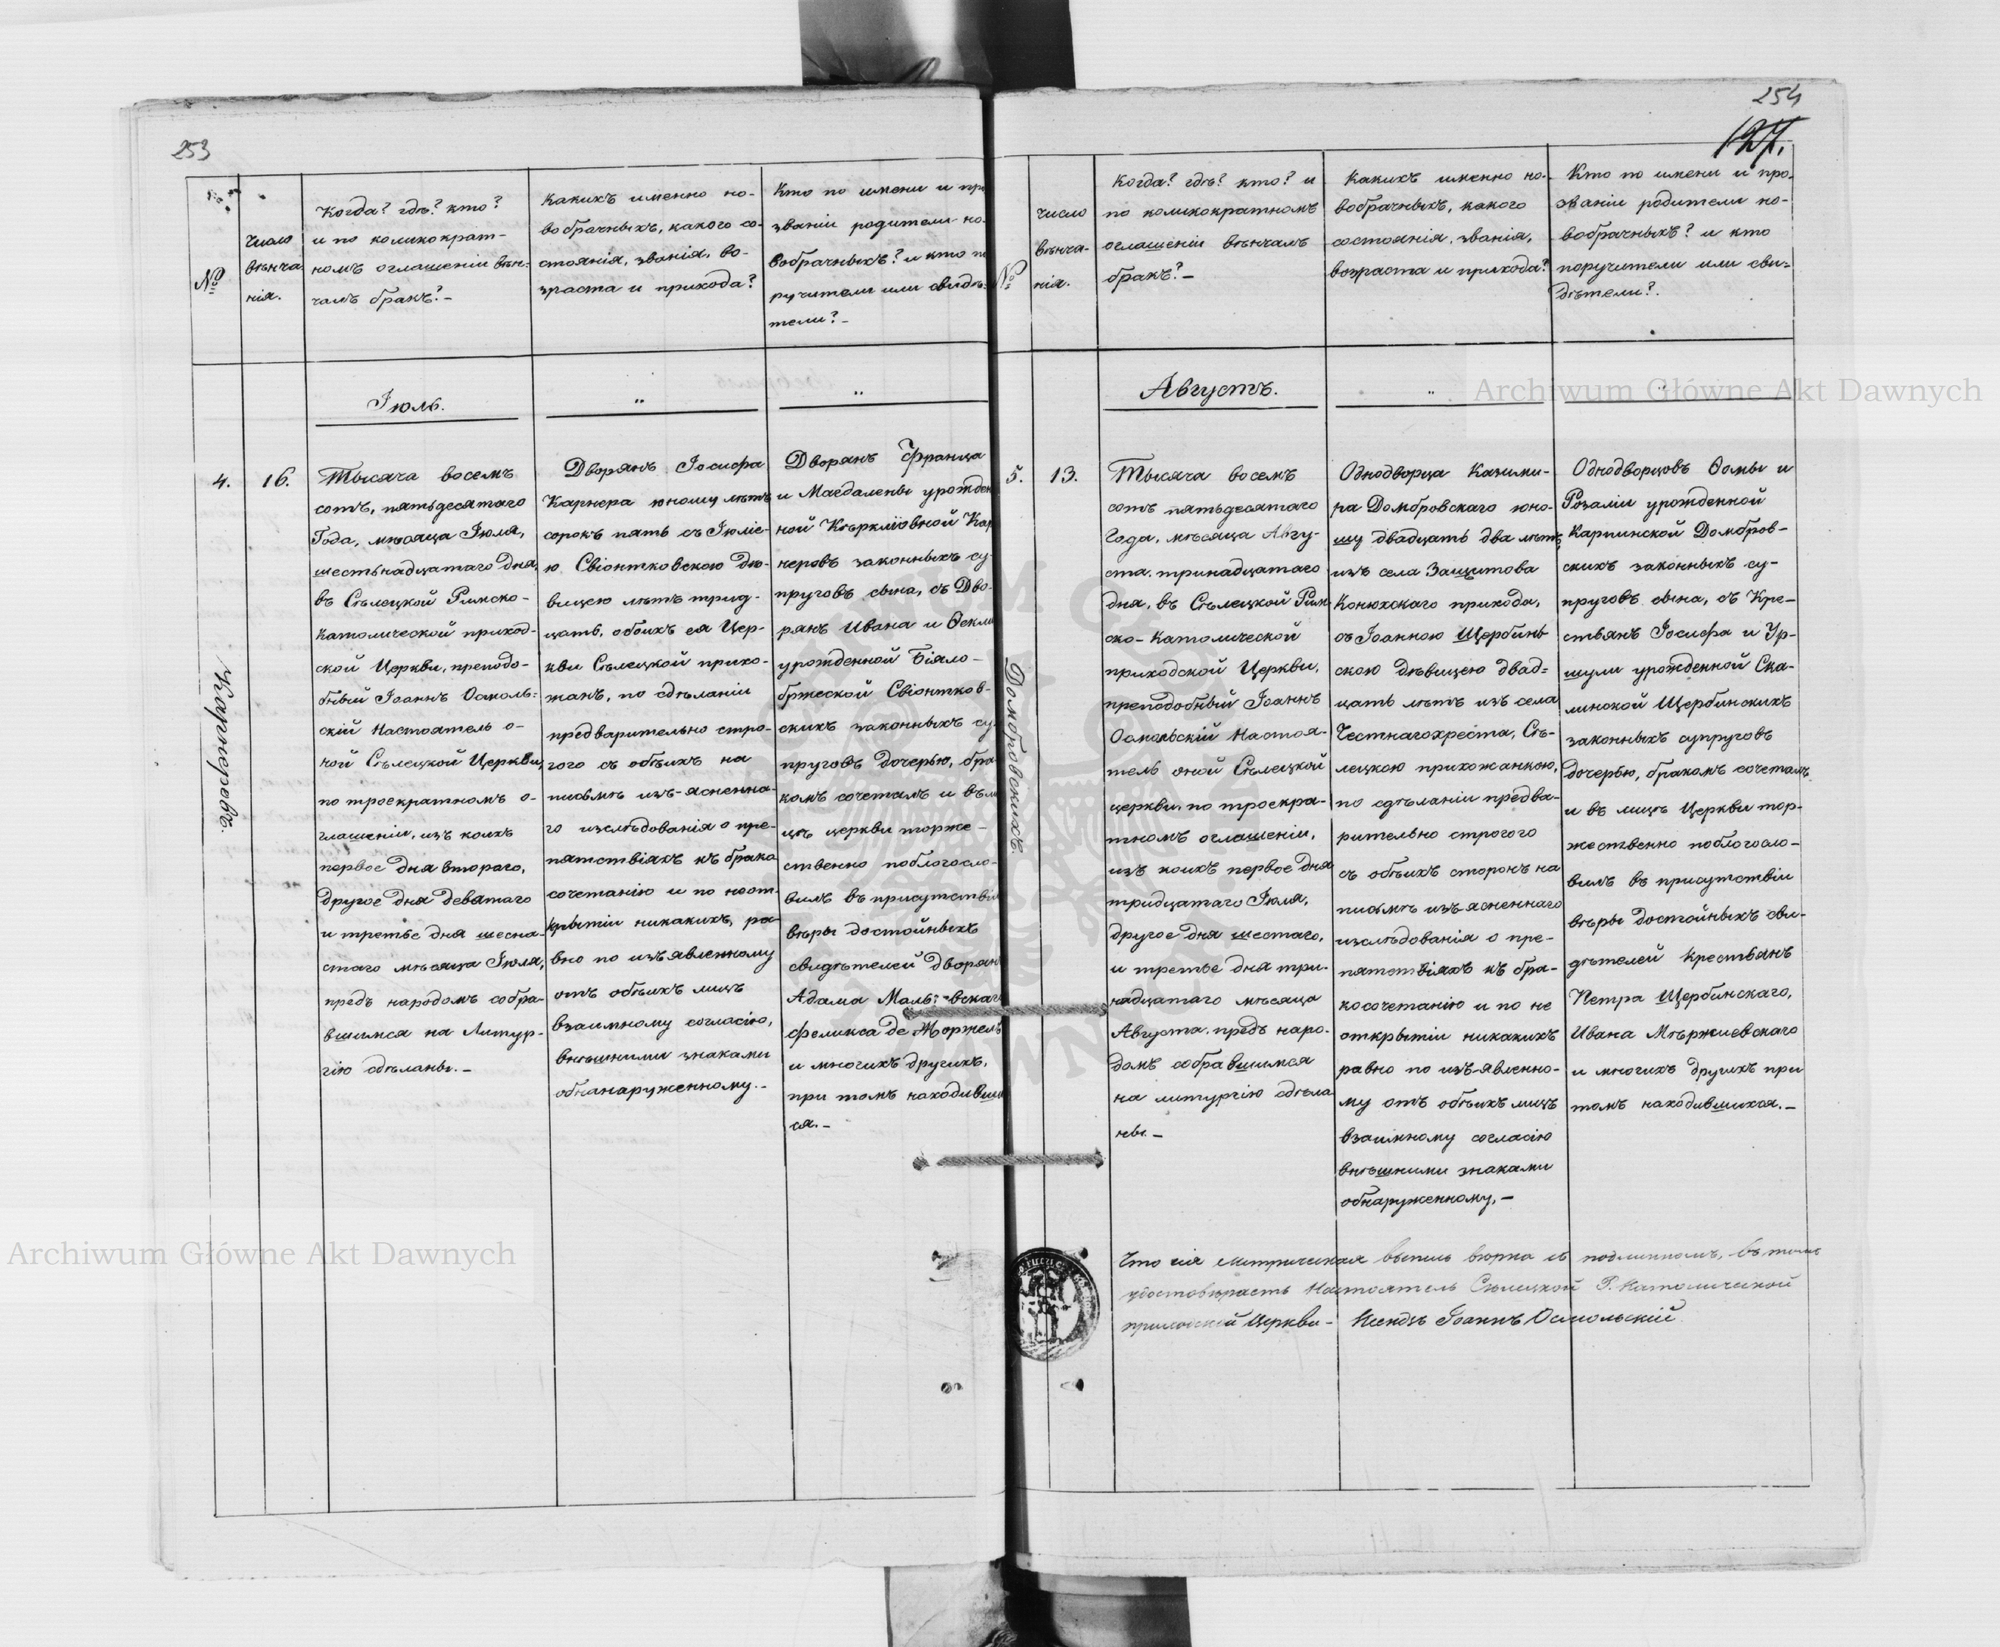 253
№
Число
вѣнча-
нія.
Когда? гдѣ? кто?
и по коликократ-
номъ оглашеніи вѣн-
чалъ бракъ?-
Какихъ именно но-
вобрачныхъ, какого со-
стоянія, званія, во-
зраста и прихода?
Кто по имени и про
званіи родители но-
вобрачныхъ? и кто по
ручители или свидѣ-
тели?-
Іюль.
4.
16.
Карнеровъ.
Тысяча восемъ
сотъ, пятьдесятаго
Года, мѣсяца Іюля,
шестьнадцатаго дня,
въ Сѣлецкой Римско-
католической приход-
ской Церкви, преподо-
бный Іоаннъ Осмоль-
скій Настоятель о-
ной Сѣлецкой Церкви,
по троекратномъ о-
глашеніи, изъ коихъ
первое дня втораго,
другое дня деватаго
и третье дня шесна-
стаго мѣсяца Іюля,
предъ народомъ собра-
вшимся на Литур-
гію сдѣланы.-
Дворянъ Іосифа
Карнера юношу лѣтъ
сорокъ пять съ Іюліе-
ю Свіонтковскою дѣ-
вицею лѣтъ трид-
цать, обоихъ ея Цер-
кви Сѣлецкой прихо-
жанъ, по сдѣланіи
предварительно стро-
гого съ обѣихъ на
письмѣ изъ-ясненна-
го изслѣдованія о пре-
пятствіяхъ къ брако
сочетанію и по неот-
крытіи никакихъ, ра-
вно по изъявленному
отъ обѣихъ лицъ
взаимному согласію,
внѣшними знаками
обнанаруженному.-
Дворянъ Франца
и Магдалены урожден
ной Кѣркліовной Кар
неровъ законныхъ су-
пруговъ сына, съ Дво-
рянъ Ивана и Ѳеклы
урожденной Біяло-
бржеской Свіонтков-
скихъ законныхъ су
пруговъ дочерью, бра
комъ сочеталъ и въ ли
цѣ церкви торже-
ственно поблогосло-
вилъ въ присутствіи
вѣры достойныхъ
свидѣтелей Дворянъ
Адама
Феликса де
и многихъ другихъ,
при томъ находивши
ся.-
254
127.
№
число
вѣнча-
нія.
Когда? гдѣ? кто? и
по коликократномъ
оглашеніи вѣнчалъ
бракъ?-
Какихъ именно но-
вобрачныхъ, какого
состоянія, званія,
возраста и прихода?
Кто по имени и про-
званіи родители но-
вобрачныхъ? и кто
поручители или сви-
дѣтели?.
Августъ.
5.
13.
Домбровскихъ
Тысяча восемъ
сотъ пятьдесятаго
Года, мѣсяца Авгу-
ста, тринадцатаго
дня, въ Сѣлецкой Рим
ско-Католической
приходской Церкви,
преподобный Іоаннъ
Осмольскій Настоя-
тель оной Сѣлецкой
церкви, по троекра-
тномъ оглашеніи,
изъ коихъ первое дня
тридцатаго Іюля,
другое дня шестаго,
и третье дня три-
надцатаго мѣсяца
Августа, предъ наро-
домъ собравшимся
на литургію сдѣла
ны.-
Однодворца Казими-
ра Домбровскаго юно-
шу двадцать два лѣтъ,
изъ села Защитова
Конюхскаго прихода,
съ Іоанною Щербинь
скою дѣвицею двад-
цать лѣтъ изъ села
Честнагохреста, Сѣ-
лецкою прихожанкою,
по сдѣланіи предва-
рительно строгого
съ обѣихъ сторонъ на
письмѣ изъ-ясненнаго
изслѣдованія о пре-
пятствіяхъ къ бра-
косочетанію и по не
открытіи никакихъ
равно по изъ-явленно-
му отъ обѣихъ лицъ
взаимному согласію
внѣшними знаками
обнаруженному,-
Однодворцовъ Ѳомы и
Розаліи урожденной
Карпинской Домбров-
скихъ законныхъ су-
пруговъ сына, съ Кре-
стьянъ Іосифа и Ур-
шули урожденной Ска-
линской Щербинскихъ
законныхъ супруговъ
дочерью, бракомъ сочеталъ
и въ лицѣ Церкви тор-
жественно поблогосло-
вилъ въ присутствіи
вѣры достойныхъ сви-
дѣтелей крестьянъ
Петра Щербинскаго,
Ивана Мѣржиевскаго
и многихъ другихъ при
томъ находившихся.-
Что сія метрическая выпись вѣрна съ подлиннымъ, въ томъ
удостовѣряетъ Настоятель Сѣлецкой Р. Католической
приходской Церкви- Ксендзъ Іоаннъ Осмольскій
Archiwum Główne Akt Dawnych
Archiwum Główne Akt Dawnych